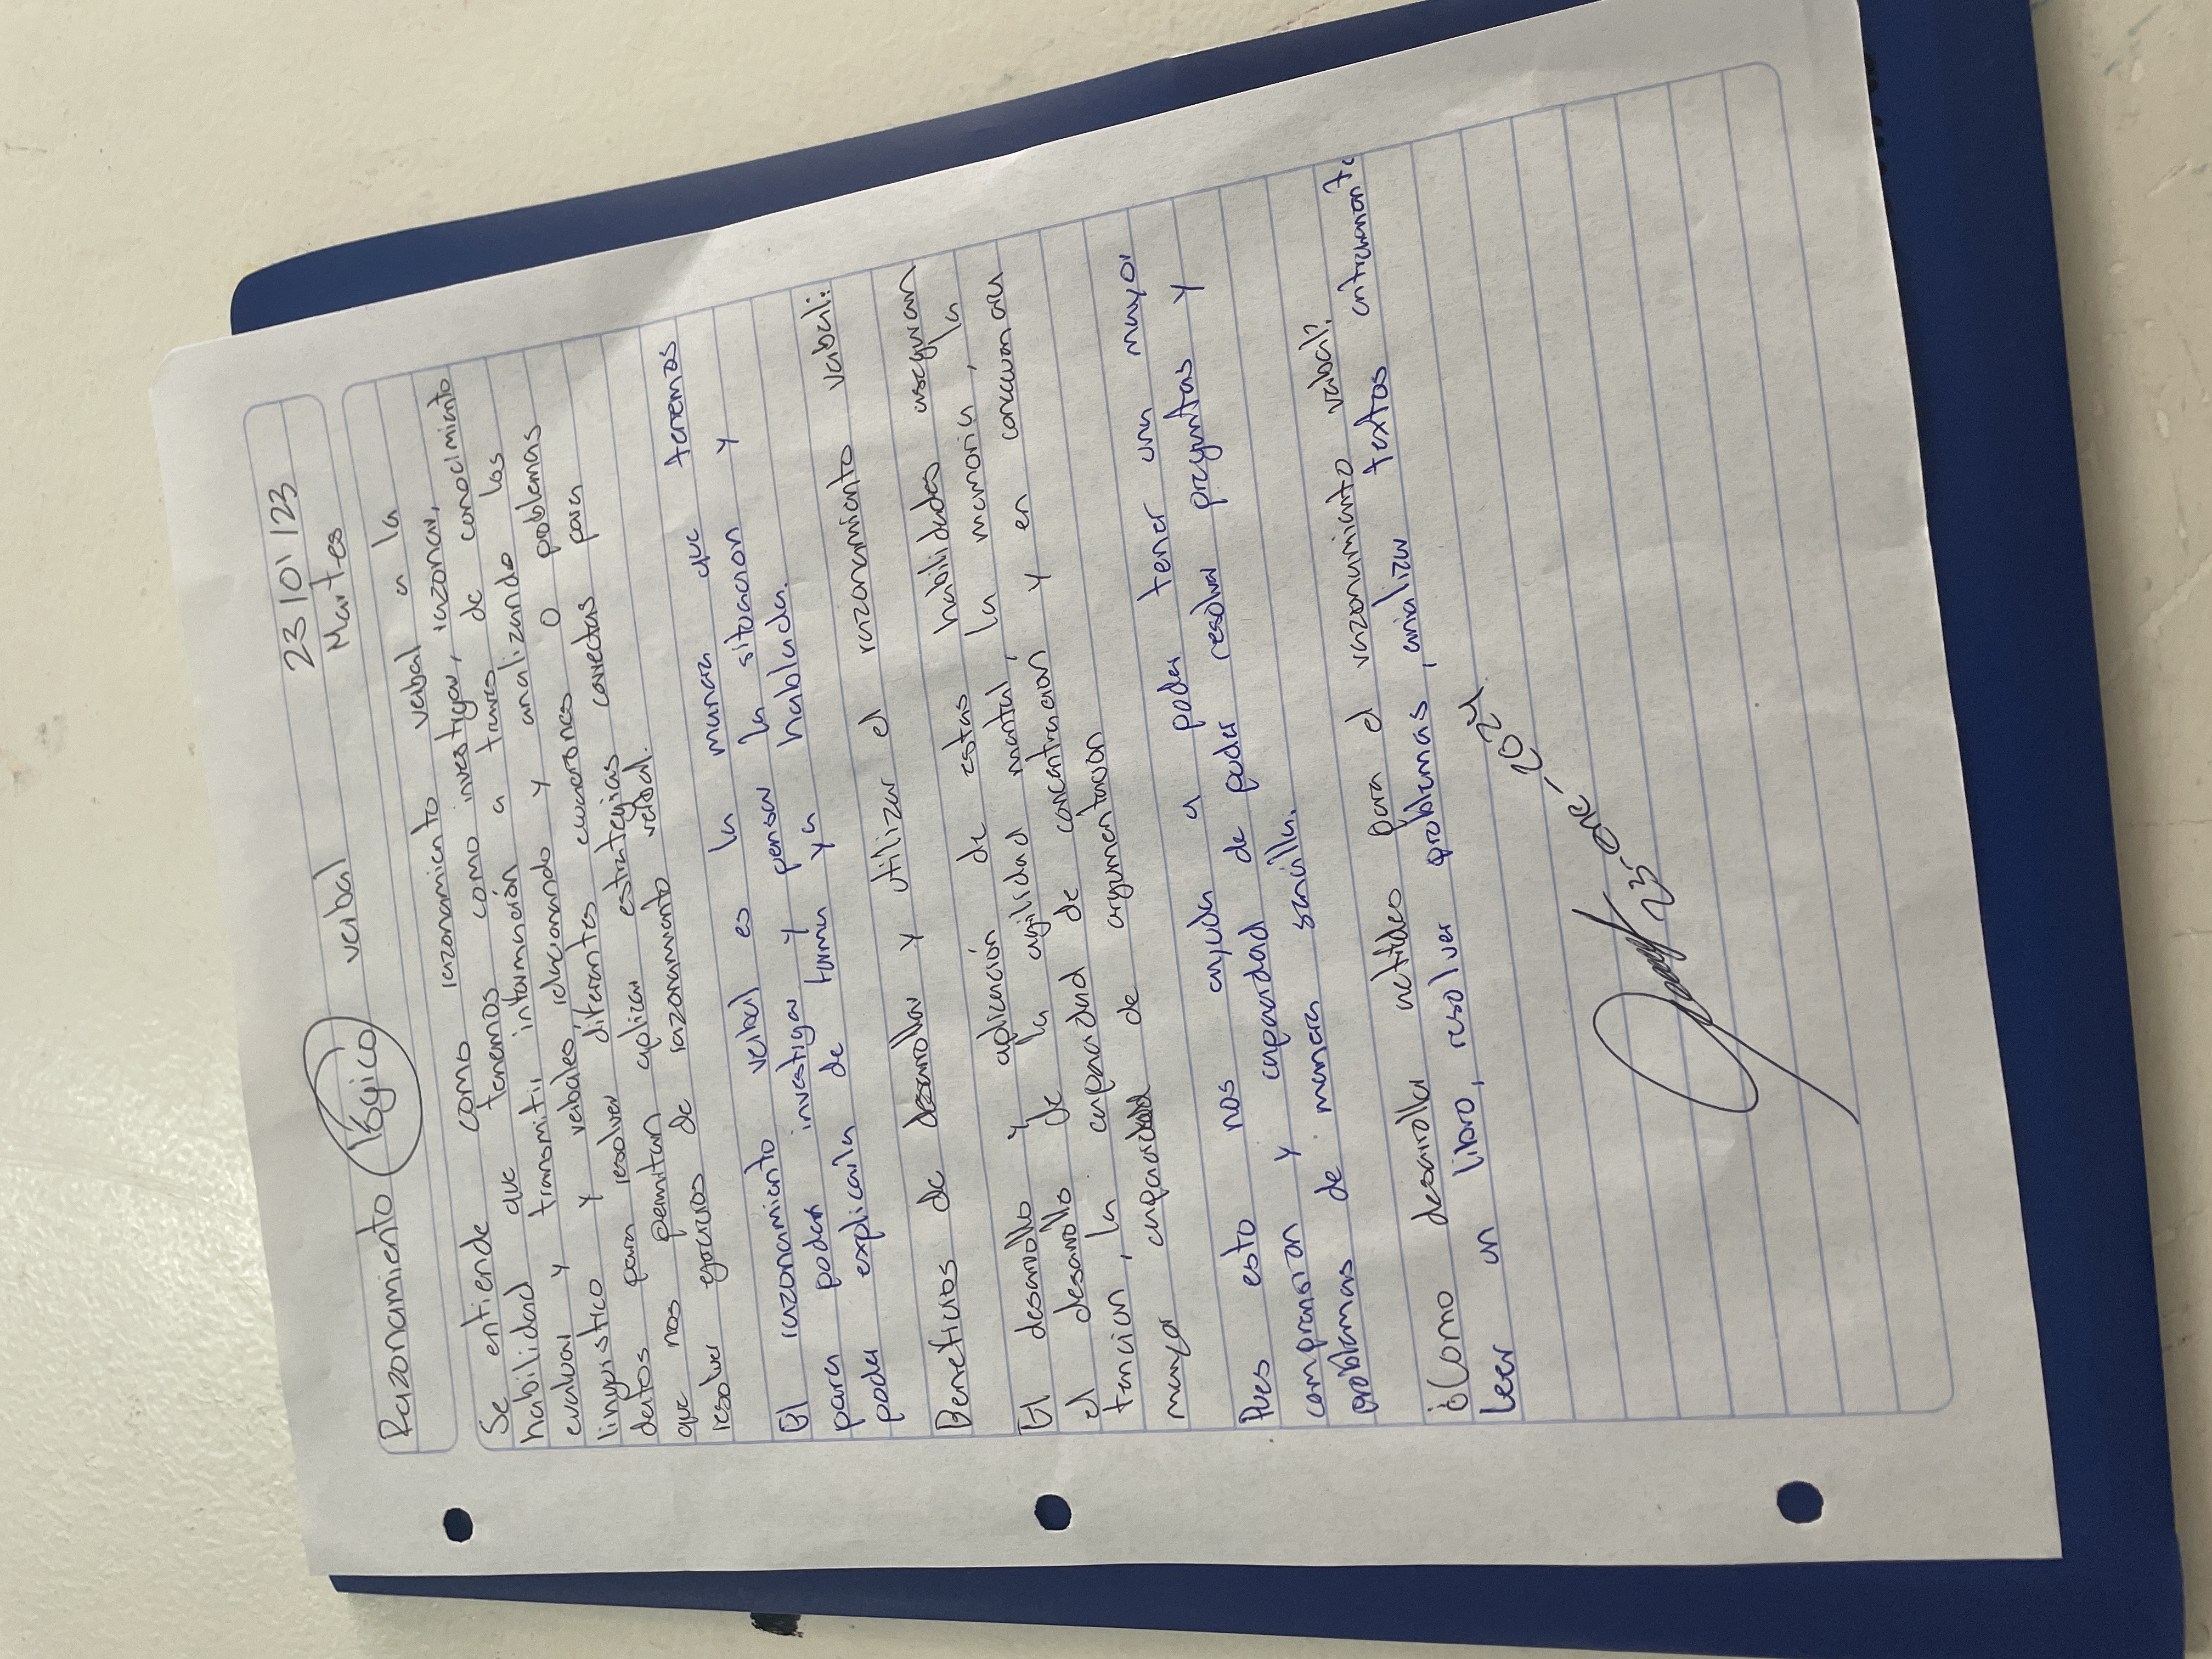 23/01/23
Martes
Razonamiento lógico verbal
Se entiende como razonamiento verbal a la
habilidad que tenemos como investigar, razonar,
evaluar y transmitir información a traves de conocimiento
linguistico y verbales, iducionando y analizando los
dentos para resolver diferentes cuaciones o problemas
que nos permitan aplicar estrategias correctas para
resolver ejercicios de razonamiento verbal.
El razonamiento verbal es la manera que tenemos
para poder investigar y pensar la situacion y
poder explicarla de forma ya hablada.
Beneficios de desarrollar y utilizar el razonamiento verbal:
El desarrollo y aplicación de estas habilidades aseguran
el desarrollo de la agilidad mental, la memoria, la
tencion, la capacidad de concentracion y en
mayor capacidad de argumentacion
Pues esto nos ayuda a poder tener una mayor
comprension y capacidad de poder resolver preguntas y
problemas de manera sencilla.
¿Como desarrollar para el razonamiento verbal?
Leer un libro, resolver problemas, analizar textos
23-ene-2024